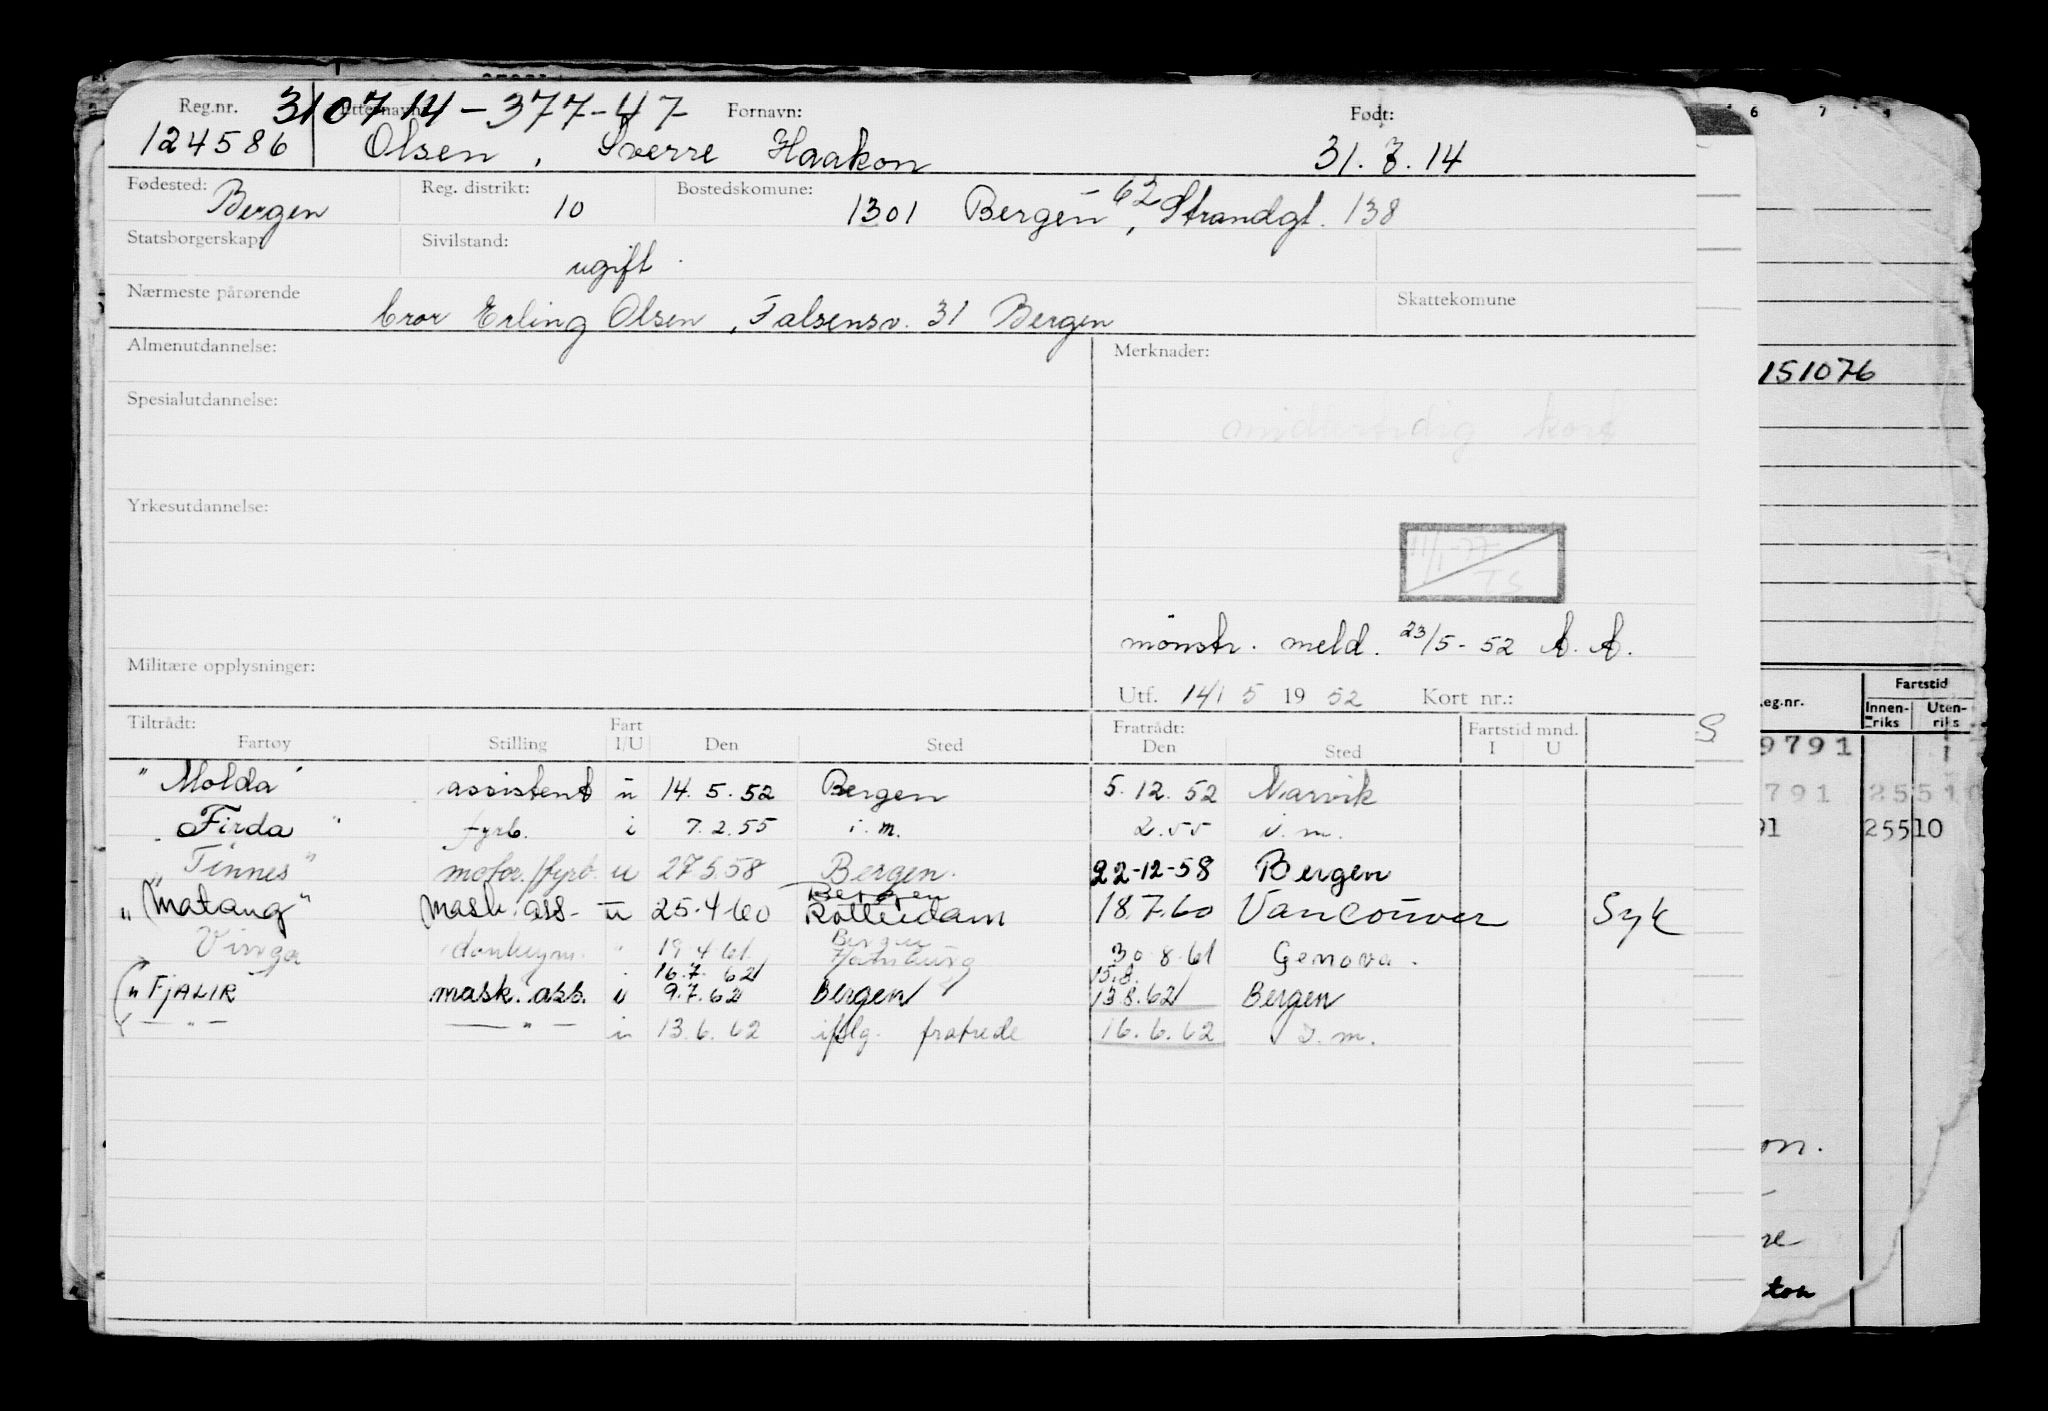 Reg.nr. 310714-377-47 Etternavn: Fornavn: Født:
124586 Olsen, Sverre Haakon 31.7.14
Fødested: Reg. distrikt: Bostedskomune:
Bergen 10 1301 Bergen -62, Strandgt. 138
Statsborgerskap: Sivilstand:
ugift
Nærmeste pårørende Skattekomune
bror Erling Olsen, Falsensv. 31 Bergen
Almenutdannelse: Merknader:
151076
Spesialutdannelse:
midlertidig kort
Yrkesutdannelse:
11/1-77
TS
mønstr. meld. 23/5-52 A.A.
Militære opplysninger:
Utf. 14/5 1952 Kort nr.:
Tiltrådt: Fart Fratrådt: Fartstid mnd.
Fartøy Stilling I/U Den Sted Den Sted I U
eg.nr. Fartstid
Innenriks Utenriks
S
"Molda" assistent u 14.5.52 Bergen 5.12.52 Narvik
9791
"Firda" fyrb. i 7.2.55 i.m. 2.55 i.m.
791 25510
91 25510
"Tinnes" motor./fyrb. u 27.5.58 Bergen. 22-12-58 Bergen
Bergen
"Matang" Mask. ass. u 25-4-60 Rotterdam 18.7.60 Vancouver Syk
Bergen
Vinga donkeym. " 19.4.61 Hamburg 30.8.61 Genova.
16.7.62 15.8.
"FJALIR mask. ass. i 9.7.62 Bergen 13.8.62 Bergen
— " — — " — i 13.6.62 iflg. fratrede 16.6.62 I.m.
on.
re
ton